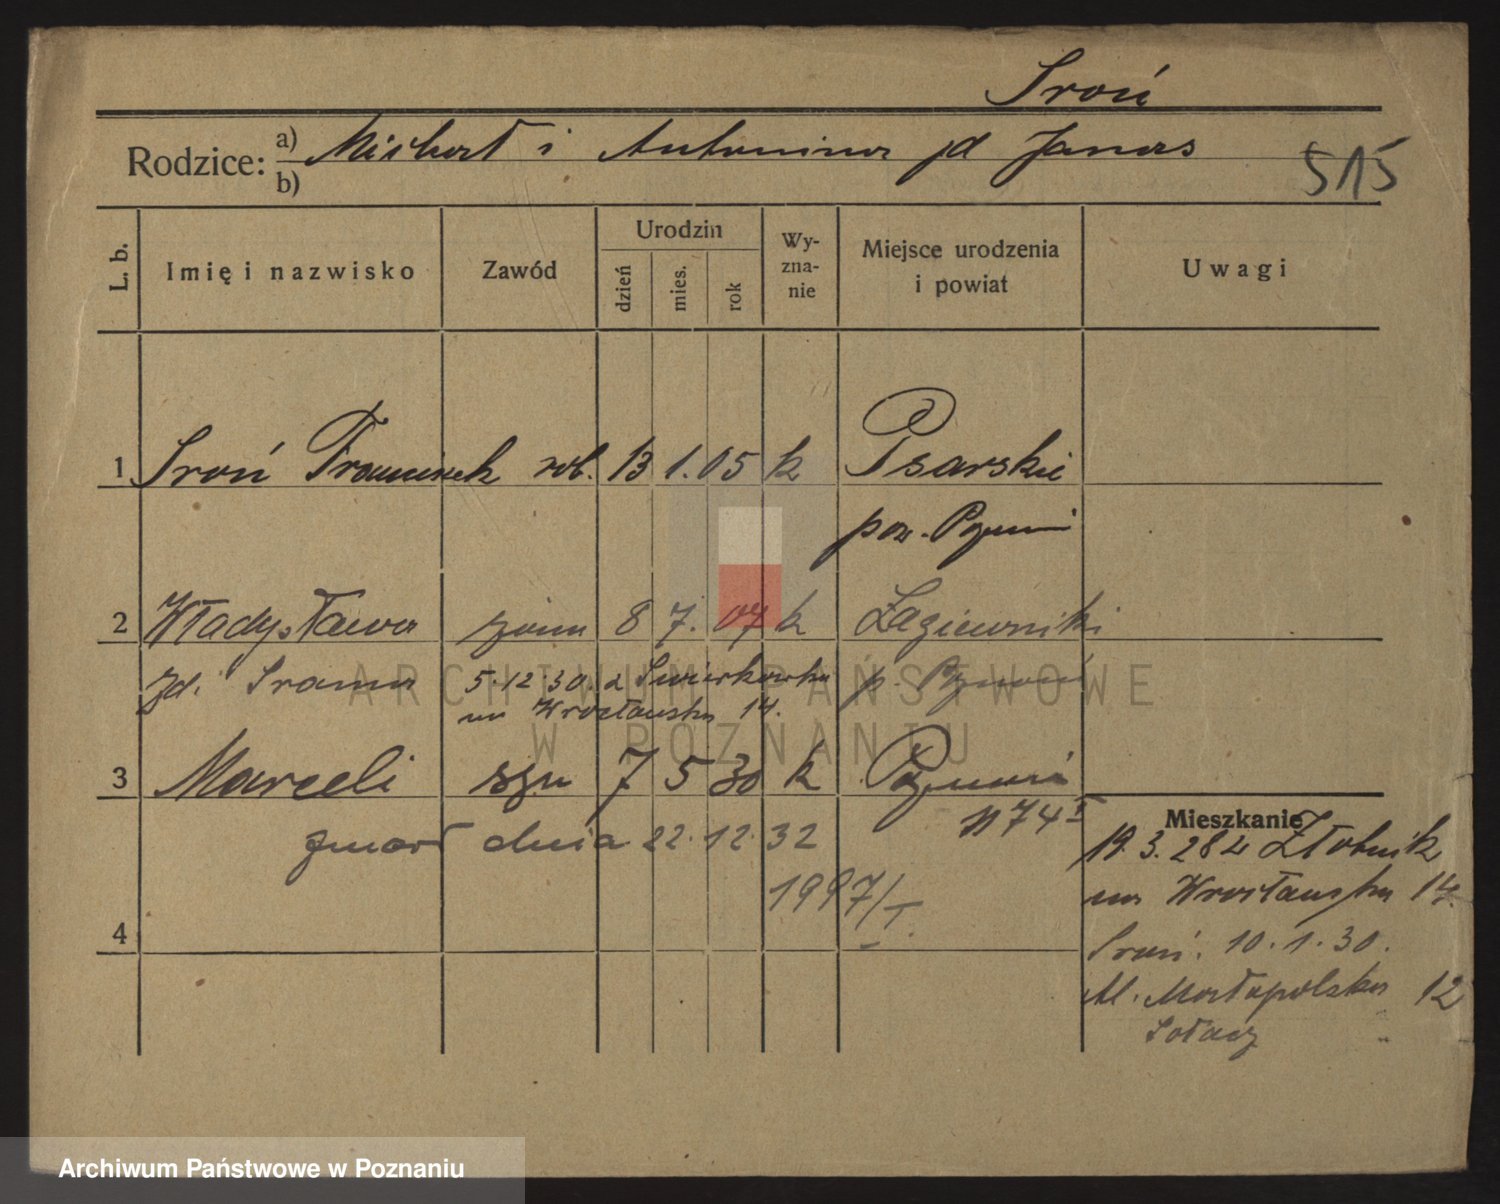 Sroń
Rodzice: a) Michał i Antonina zd Janas
b)
515
L. b.
Imię i nazwisko
Zawód
Urodzin
dzień
mies.
rok
Wy-
zna-
nie
Miejsce urodzenia
i powiat
Uwagi
1 Sroń Franciszek rob. 13 1. 05 k Psarskie
pow.
2 Władysława żona 8 7. 07 k Łagiewniki
zd. 5.12.30. z Świerkowska p. Poznań
na Wrocławska 14.
3 Marceli syn 7 5 30 k Poznań
N 74 I
zmarł dnia 22. 12. 32
1997/I.
4
Mieszkanie
19. 3. 28 u Złotnik
na Wrocławska 14.
Sroń. 10. 1. 30.
Małopolska 12
Sołacz
ARCHIWUM PAŃSTWOWE
W POZNANIU
Archiwum Państwowe w Poznaniu